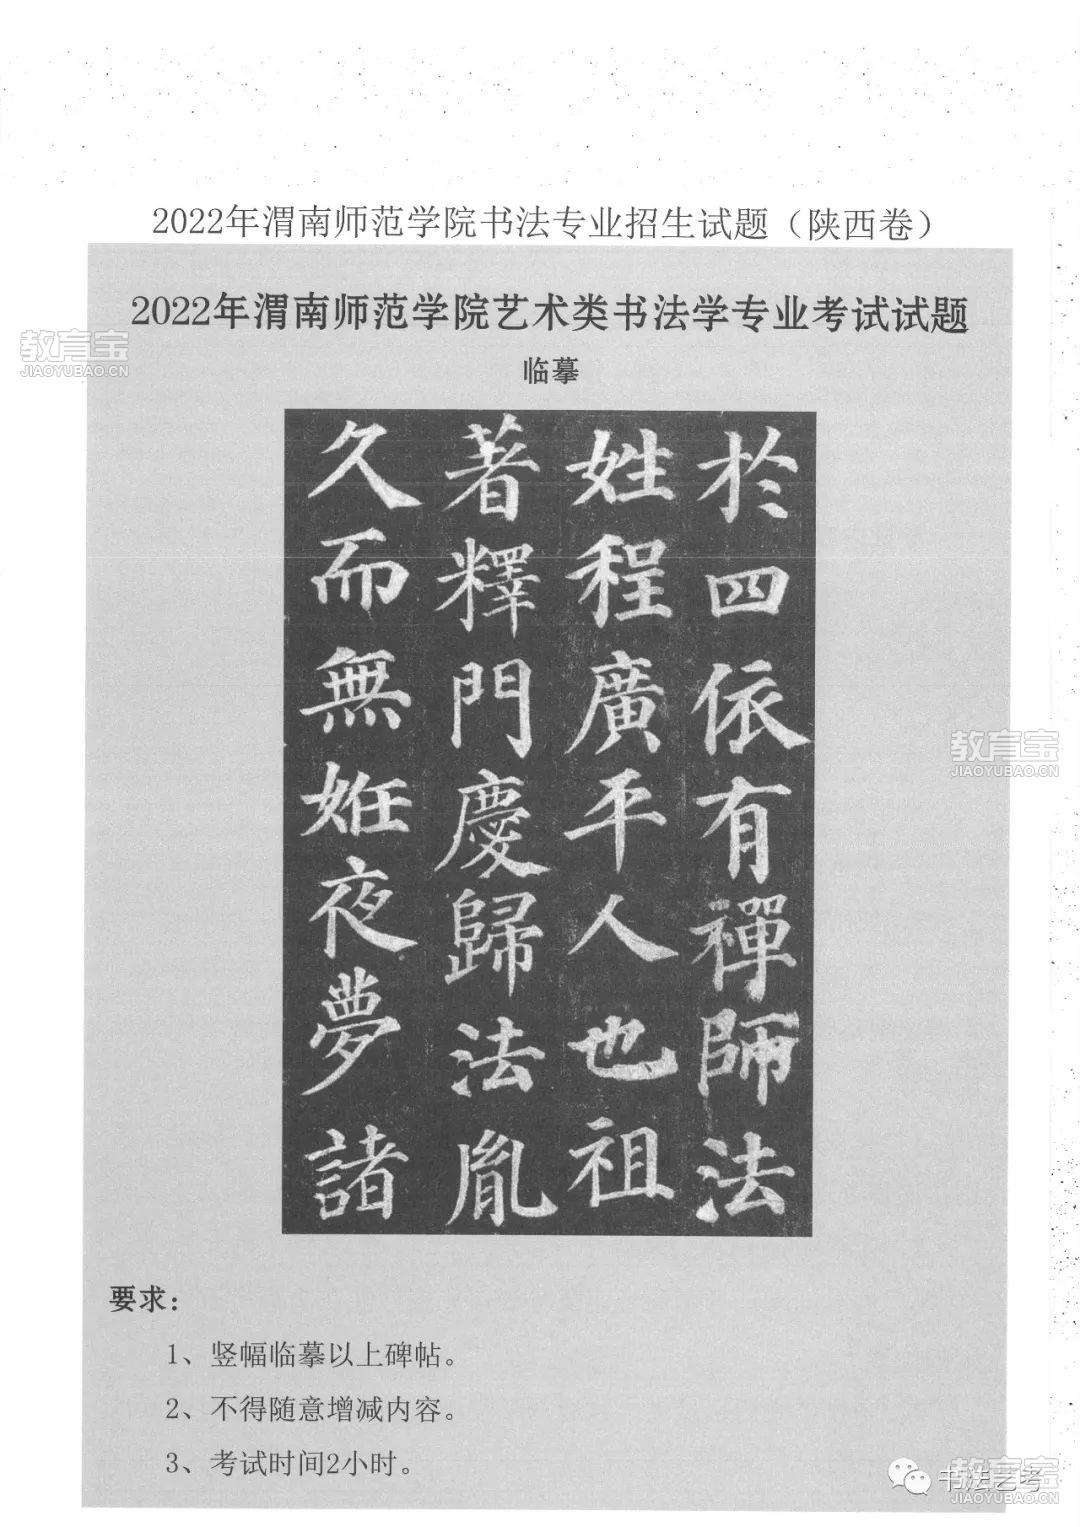 2022年渭南师范学院书法专业招生试题（陕西卷）
2022年渭南师范学院艺术类书法学专业考试试题
临摹
於四依有禪師法
姓程廣平人也祖
著釋門慶歸法胤
久而無姙夜夢諸
要求：
1、竖幅临摹以上碑帖。
2、不得随意增减内容。
3、考试时间2小时。
教育宝
JIAOYUBAO.CN
教育宝
JIAOYUBAO.CN
书法艺考
教育宝
JIAOYUBAO.CN